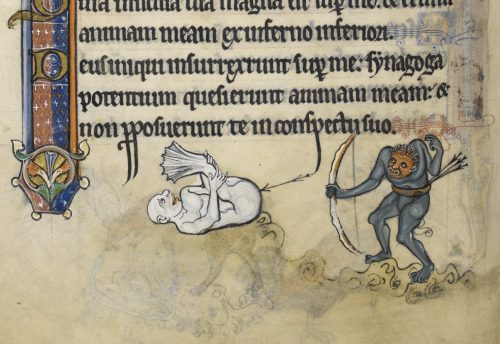 animam meam ex inferno inferiori.
Deus iniqui insurrexerunt sup me: ⁊ synagoga
potentium quesierunt animam meam: ⁊
non pposuerunt te in conspectu suo.